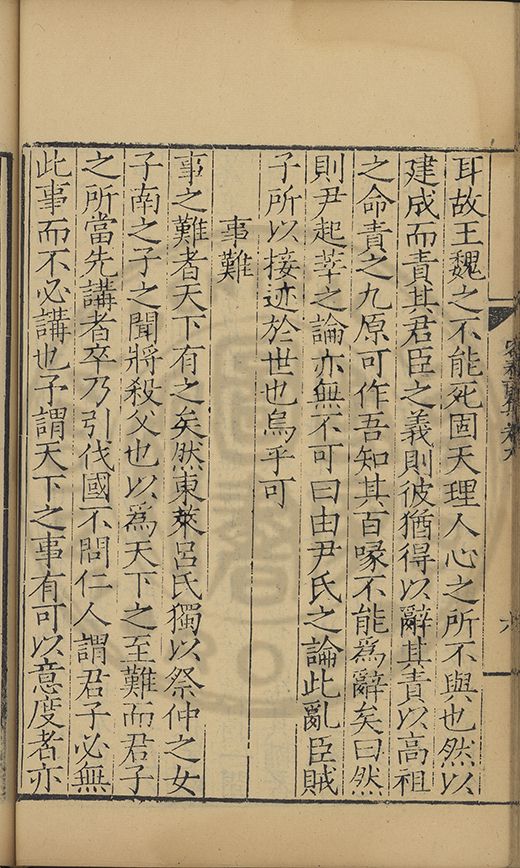 耳故王魏之不能死固天理人心之所不與也然以
建成而責其君臣之義則彼猶得以辭其責以高祖
之命責之九原可作吾知其百喙不能爲辭矣曰然
則尹起莘之論亦無不可曰由尹氏之論此亂臣賊
子所以接迹於世也烏乎可
事難
事之難者天下有之矣然東萊呂氏獨以祭仲之女
子南之子之聞將殺父也以爲天下之至難而君子
之所當先講者卒乃引伐國不問仁人謂君子必無
此事而不必講也予謂天下之事有可以意度者亦